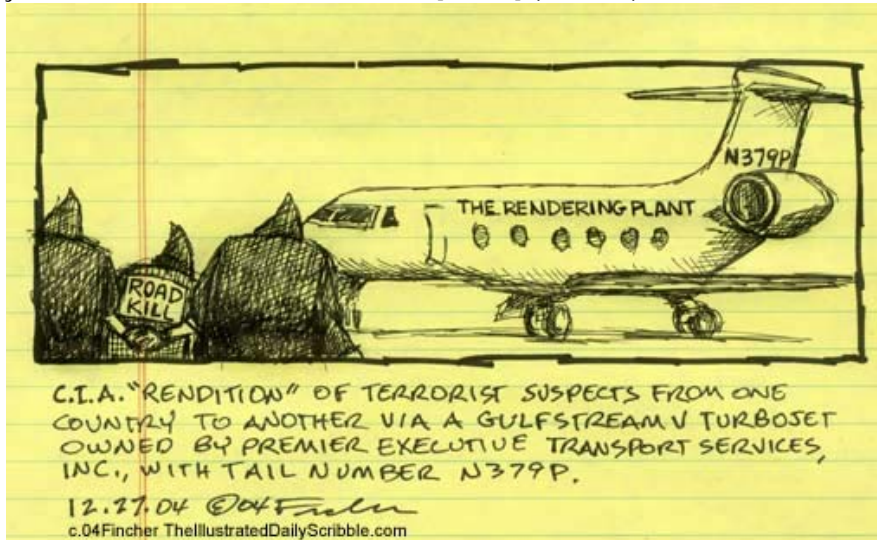 N379P
THE RENDERING PLANT
ROAD
KILL
C.I.A. "RENDITION" OF TERRORIST SUSPECTS FROM ONE
COUNTRY TO ANOTHER VIA A GULFSTREAM V TURBOJET
OWNED BY PREMIER EXECUTIVE TRANSPORT SERVICES,
INC., WITH TAIL NUMBER N379P.
12.27.04 ©04 Fincher
c.04Fincher TheIllustratedDailyScribble.com